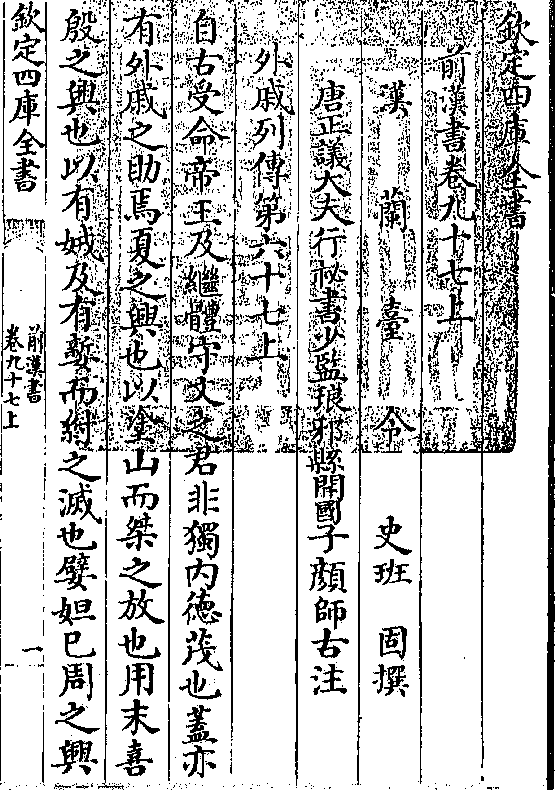 欽定四庫全書
前漢書卷九十七上
漢蘭臺令史班固撰
唐正議大夫行祕書少監琅邪縣開國子顏師古注
外戚列傳第六十七上
自古受命帝王及繼體守文之君非獨内徳茂也蓋亦
有外戚之助焉夏之興也以塗山而桀之放也用末喜
殷之興也以有娀及有㜪而紂之滅也嬖妲己周之興
欽定四庫全書
前漢書
卷九十七上
一